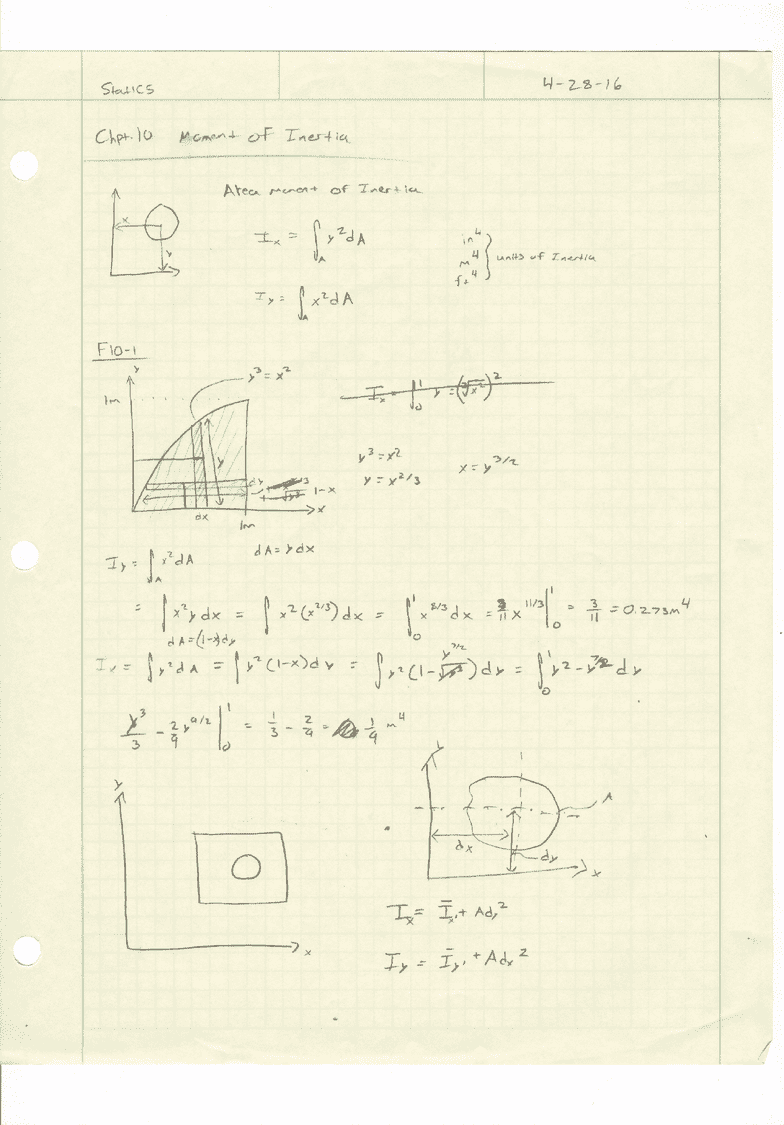 Statics 4-28-16
Chpt.10 Moment of Inertia
Area moment of Inertia
x
y
Ix = ∫A y²dA
in⁴
m⁴ } units of Inertia
ft⁴
Iy = ∫A x²dA
F10-1
y
y³ = x²
1m
Ix = ∫₀¹ y = (∛x²)²
y³ = x²
y = x^2/3
x = y^3/2
y
dy
1-x
x
dx
1m
Iy = ∫A x²dA
dA = y dx
= ∫ x²y dx = ∫ x²(x^2/3) dx = ∫₀¹ x^8/3 dx = 3/11 x^11/3 |₀¹ = 3/11 = 0.273m⁴
dA = (1-x)dy
Ix = ∫ y²dA = ∫ y²(1-x)dy = ∫ y²(1-y^3/2) dy = ∫₀¹ y² - y^7/2 dy
y³/3 - 2/9 y^9/2 |₀¹ = 1/3 - 2/9 = 1/9 m⁴
y
x
y
A
dx
dy
x
Ix = Īx' + Ady²
Iy = Īy' + Adx²